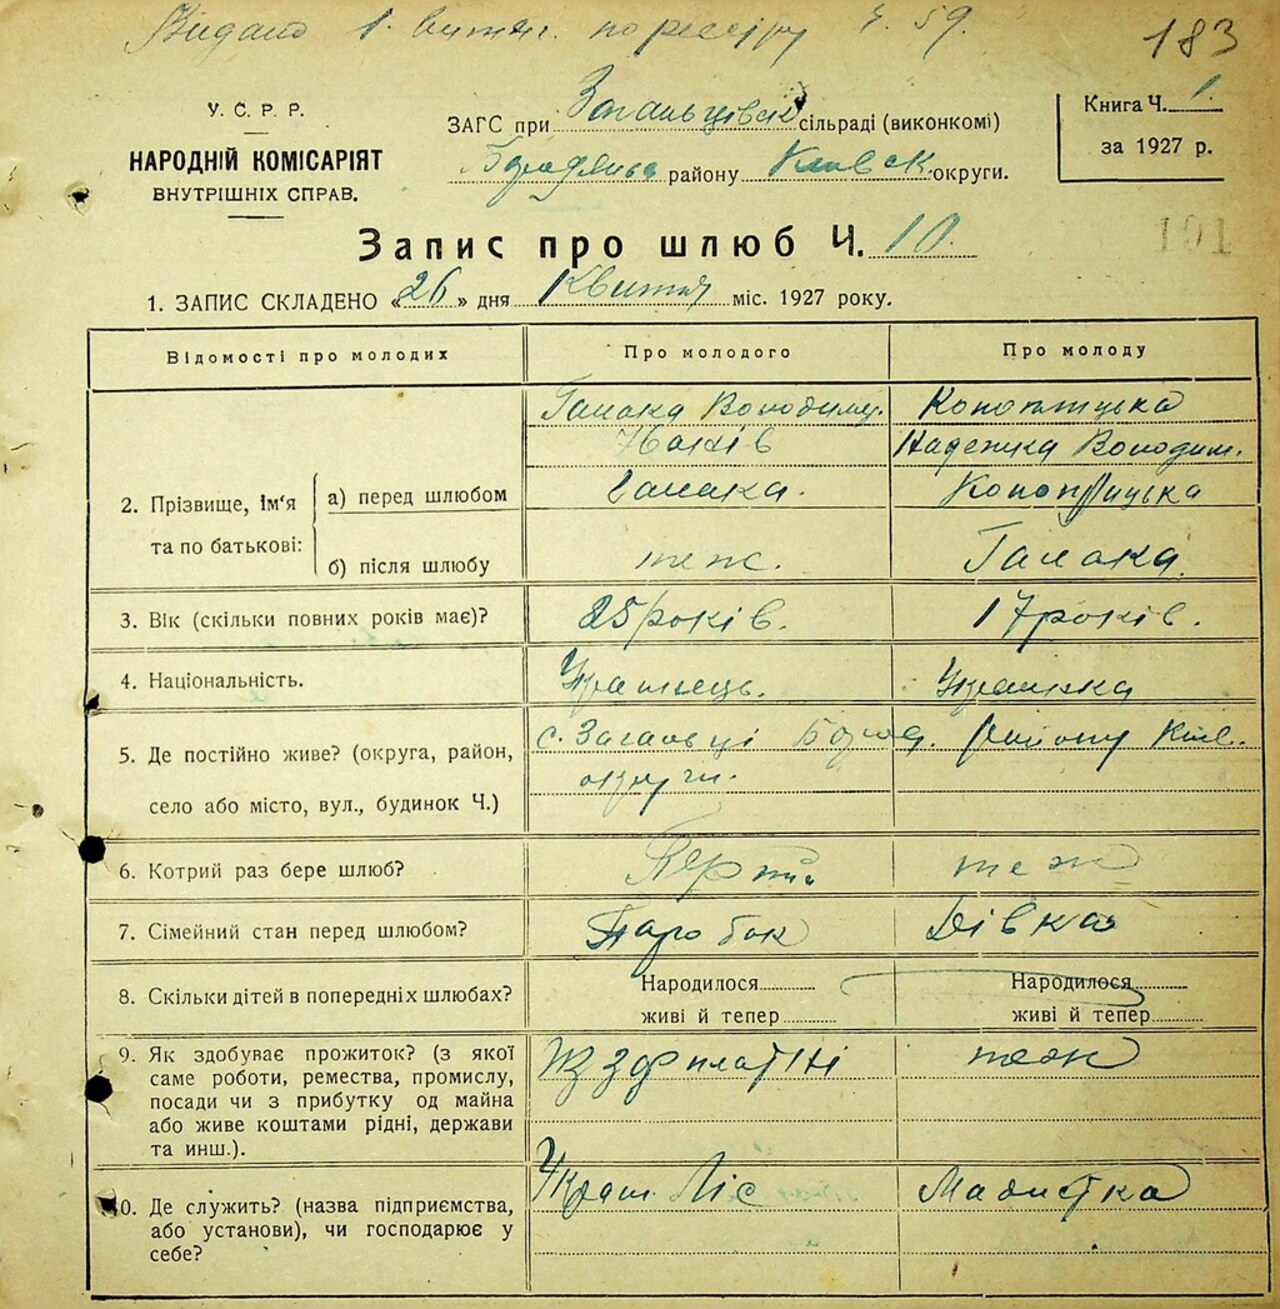 Видано 1. витяг. по реєстру Ч. 59.
183
У. С. Р. Р.
НАРОДНІЙ КОМІСАРІЯТ
ВНУТРІШНІХ СПРАВ.
ЗАГС при Загальцівск сільраді (виконкомі)
Бородянськ району Київськ. округи.
Книга Ч. 1.
за 1927 р.
101
Запис про шлюб Ч. 10.
1. ЗАПИС СКЛАДЕНО «26» дня Квітня міс. 1927 року.
Відомості про молодих
Про молодого
Про молоду
2. Прізвище, ім'я та по батькові:
а) перед шлюбом
Галака Володимир.
Галака.
Коноплицька
Надежка Володим.
Коноплицька
б) після шлюбу
теж.
Галака.
3. Вік (скільки повних років має)?
25 років.
17 років.
4. Національність.
Українець.
Українка
5. Де постійно живе? (округа, район,
село або місто, вул., будинок Ч.)
с. Загальці Бород. району Київ.
округи.
6. Котрий раз бере шлюб?
Перший
теж
7. Сімейний стан перед шлюбом?
Паробок
Дівка
8. Скільки дітей в попередніх шлюбах?
Народилося
живі й тепер
Народилося
живі й тепер
9. Як здобуває прожиток? (з якої
саме роботи, ремества, промислу,
посади чи з прибутку од майна
або живе коштами рідні, держави
та инш.).
теж
10. Де служить? (назва підприємства,
або установи), чи господарює у
себе?
Ліс